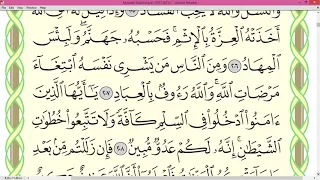 وَالنَّسْلَ وَاللَّهُ لَا يُحِبُّ الْفَسَادَ وَإِذَا قِيلَ لَهُ
أَخَذَتْهُ الْعِزَّةُ بِالْإِثْمِ فَحَسْبُهُ جَهَنَّمُ وَلَبِئْسَ
الْمِهَادُ ٢٠٦ وَمِنَ النَّاسِ مَن يَشْرِي نَفْسَهُ ابْتِغَاءَ
مَرْضَاتِ اللَّهِ وَاللَّهُ رَءُوفٌ بِالْعِبَادِ ٢٠٧ يَا أَيُّهَا الَّذِينَ
آمَنُوا ادْخُلُوا فِي السِّلْمِ كَافَّةً وَلَا تَتَّبِعُوا خُطُوَاتِ
الشَّيْطَانِ إِنَّهُ لَكُمْ عَدُوٌّ مُّبِينٌ ٢٠٨ فَإِن زَلَلْتُم مِّن بَعْدِ